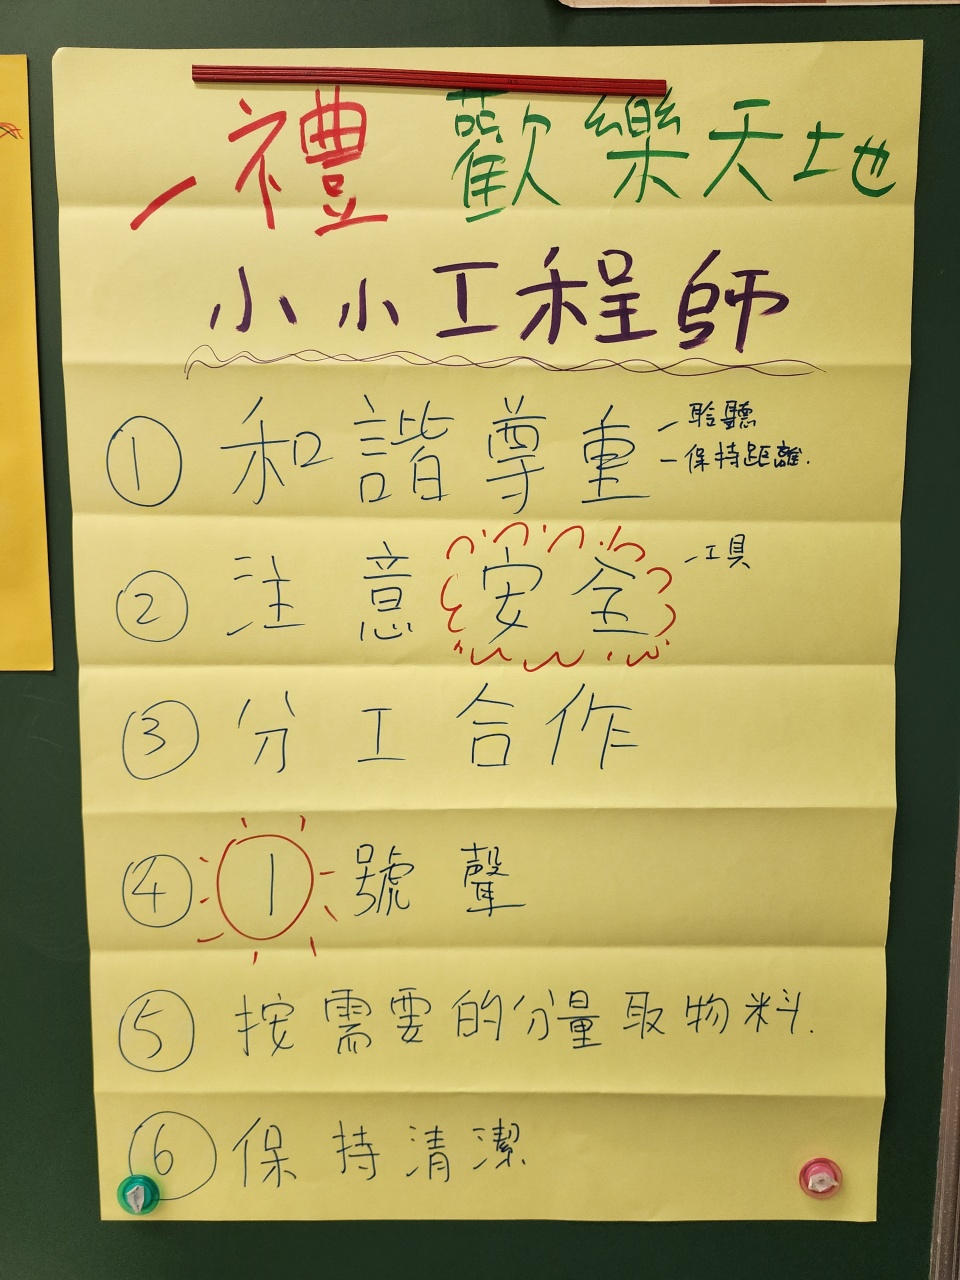 一禮 歡樂天地
小小工程師
① 和諧尊重 -聆聽
-保持距離.
② 注意安全 -工具
③ 分工合作
④ ① 號聲
⑤ 按需要的分量取物料.
⑥ 保持清潔